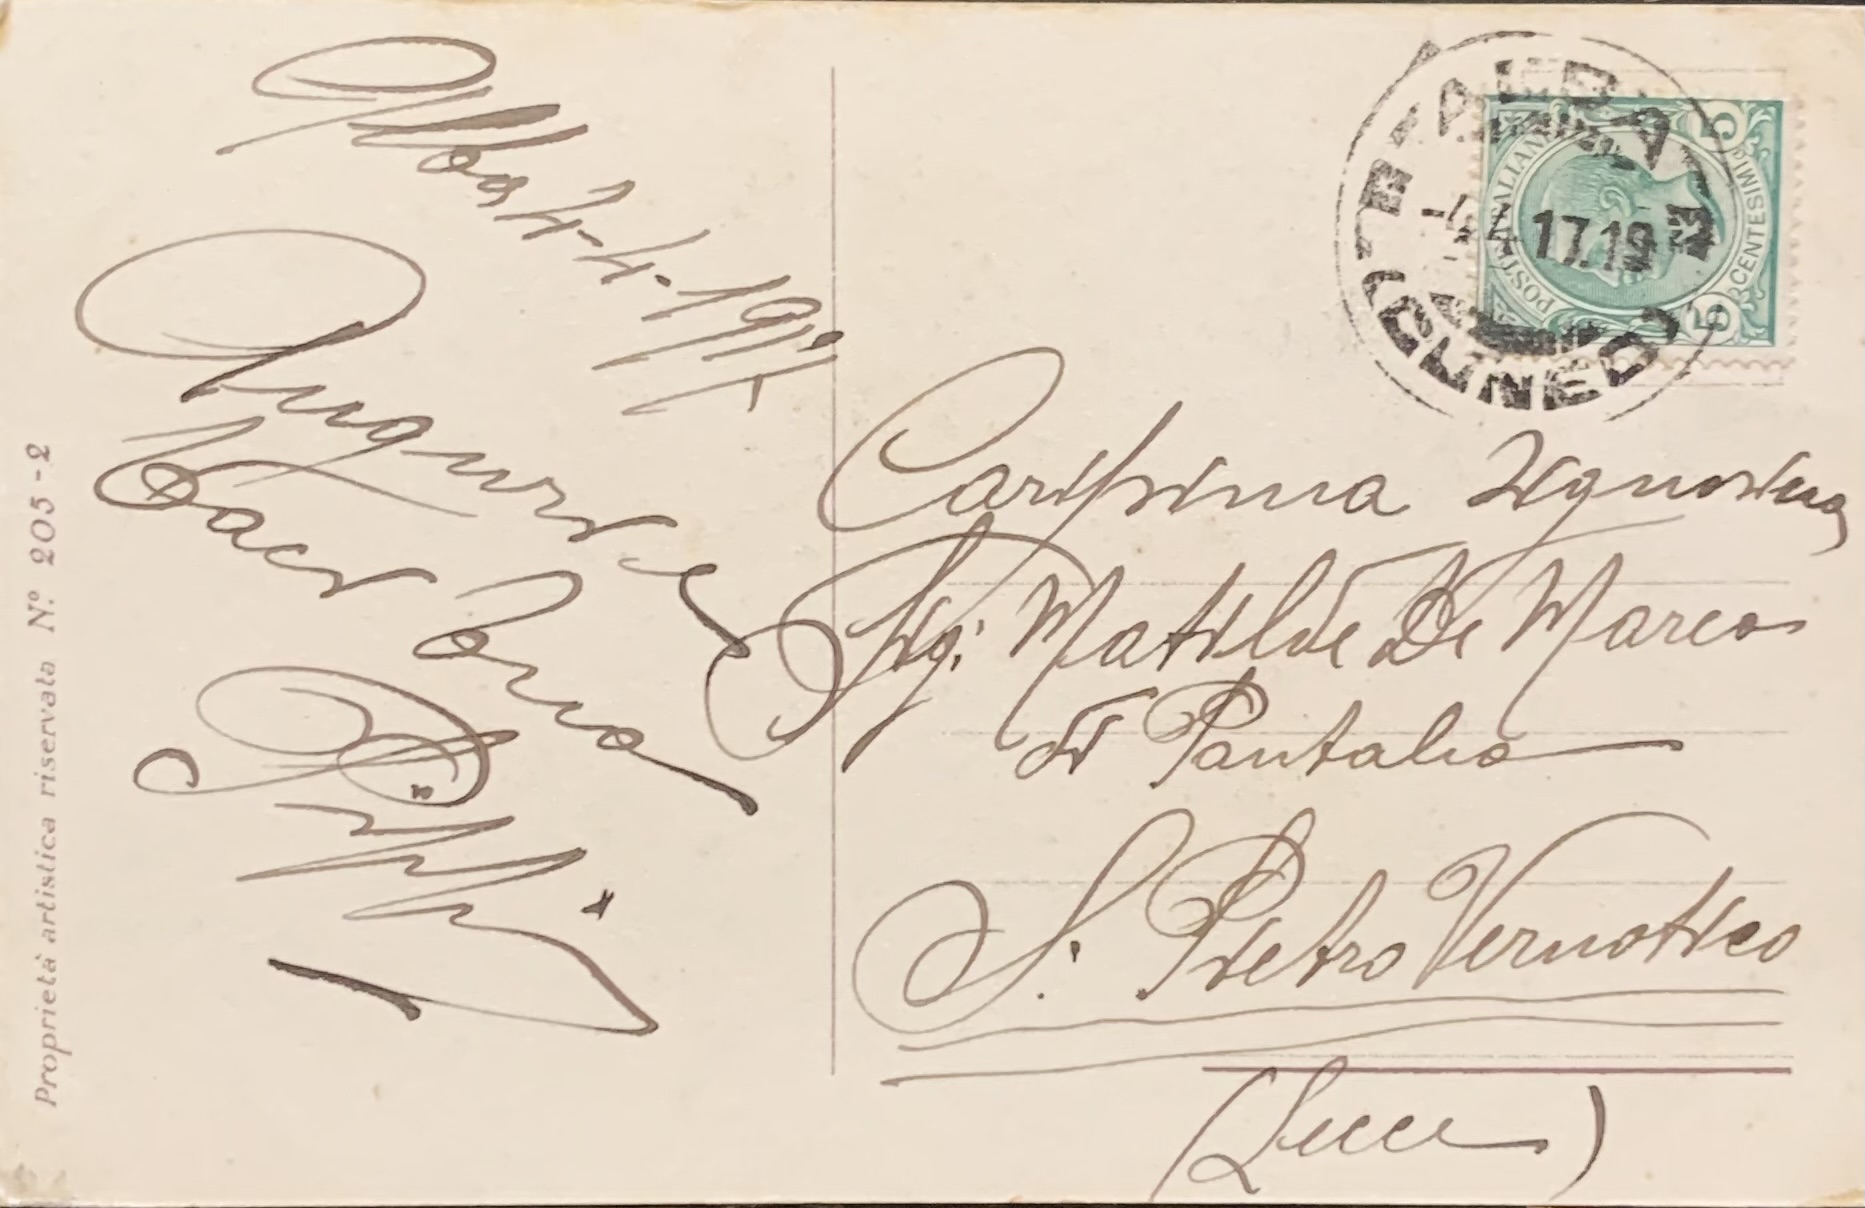 Alba 4-4-1917
Auguri e
Baci
Proprietà artistica riservata N.° 205-2
ALBA
(CUNEO)
17.19
POSTE ITALIANE
5 CENTESIMI 5
Carissima Signorina
Sig: Matilde De Marco
di Pantaleo
S. Pietro Vernotico
(Lecce)